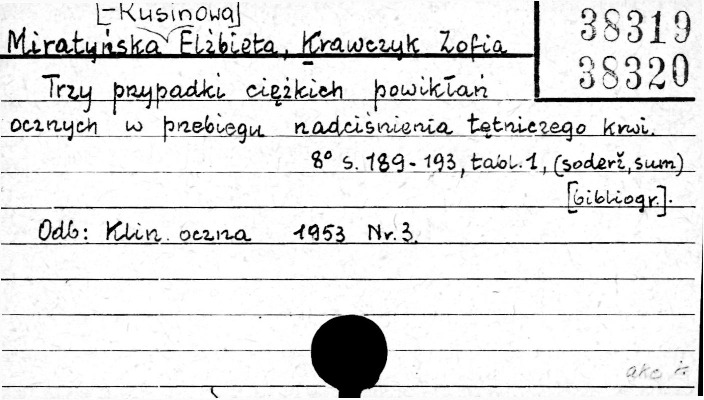 [-Kusinowa]
Miratyńska Elżbieta, Krawczyk Zofia
38319
38320
Trzy przypadki ciężkich powikłań
ocznych w przebiegu nadciśnienia tętniczego krwi.
8° s. 189-193, tabl. 1, (soderž, sum)
[bibliogr.].
Odb: Klin. oczna 1953 Nr. 3.
ako